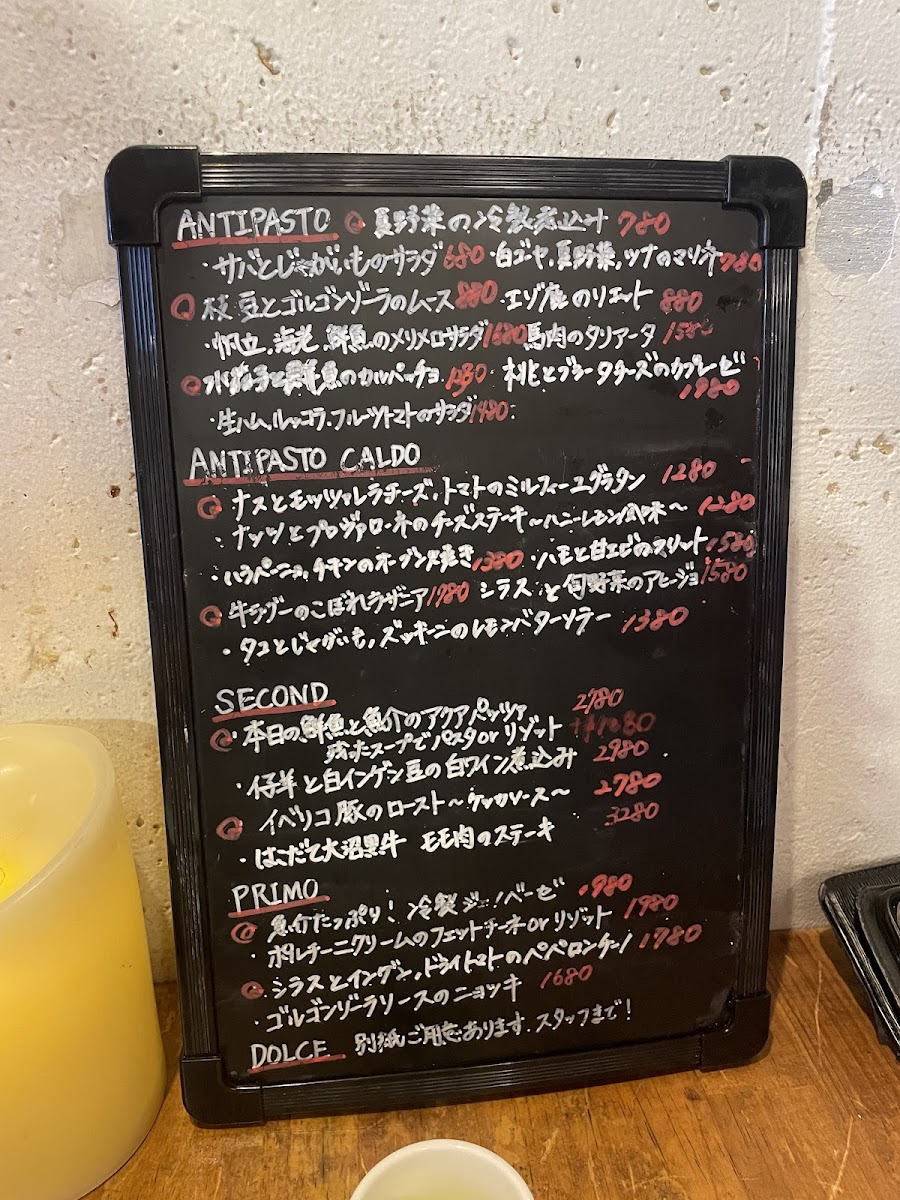 ANTIPASTO ◎ 夏野菜の冷製煮込み 780
・サバとじゃがいものサラダ 680 ・白ゴーヤ,夏野菜,ツナのマリネ 780
◎ 枝豆とゴルゴンゾーラのムース 880 ・エゾ鹿のリエット 880
・帆立,海老,鮮魚のメリメロサラダ 1680 馬肉のタリアータ 1580
◎ 水だこと鮮魚のカルパッチョ 桃とブラータチーズのカプレーゼ
1980
・生ハム,ルッコラ,フルーツトマトのサラダ 1480
ANTIPASTO CALDO
◎ ナスとモッツァレラチーズ,トマトのミルフィーユグラタン 1280
・ナッツとプロヴァローネのチーズステーキ〜ハニーレモン風味〜 1280
・ハラペーニョ,チキンのオーブン焼き 1380 ・ハモと甘エビのフリット 1580
◎ 牛ラグーのこぼれラザニア 1980 シラスと旬野菜のアヒージョ 1580
・タコとじゃがいも,ズッキーニのレモンバターソテー 1380
SECOND
◎・本日の鮮魚と魚介のアクアパッツァ 2980
残ったスープでパスタorリゾット
・仔羊と白インゲン豆の白ワイン煮込み 2980
◎ イベリコ豚のロースト〜ケッカソース〜 2780
・はこだて大沼黒牛 モモ肉のステーキ 3280
PRIMO
◎ 魚介たっぷり! 冷製ジェノベーゼ 1980
・ポルチーニクリームのフェットチーネorリゾット 1980
◎ シラスとインゲン,ドライトマトのペペロンチーノ 1780
・ゴルゴンゾーラソースのニョッキ 1680
DOLCE 別紙ご用意あります.スタッフまで!